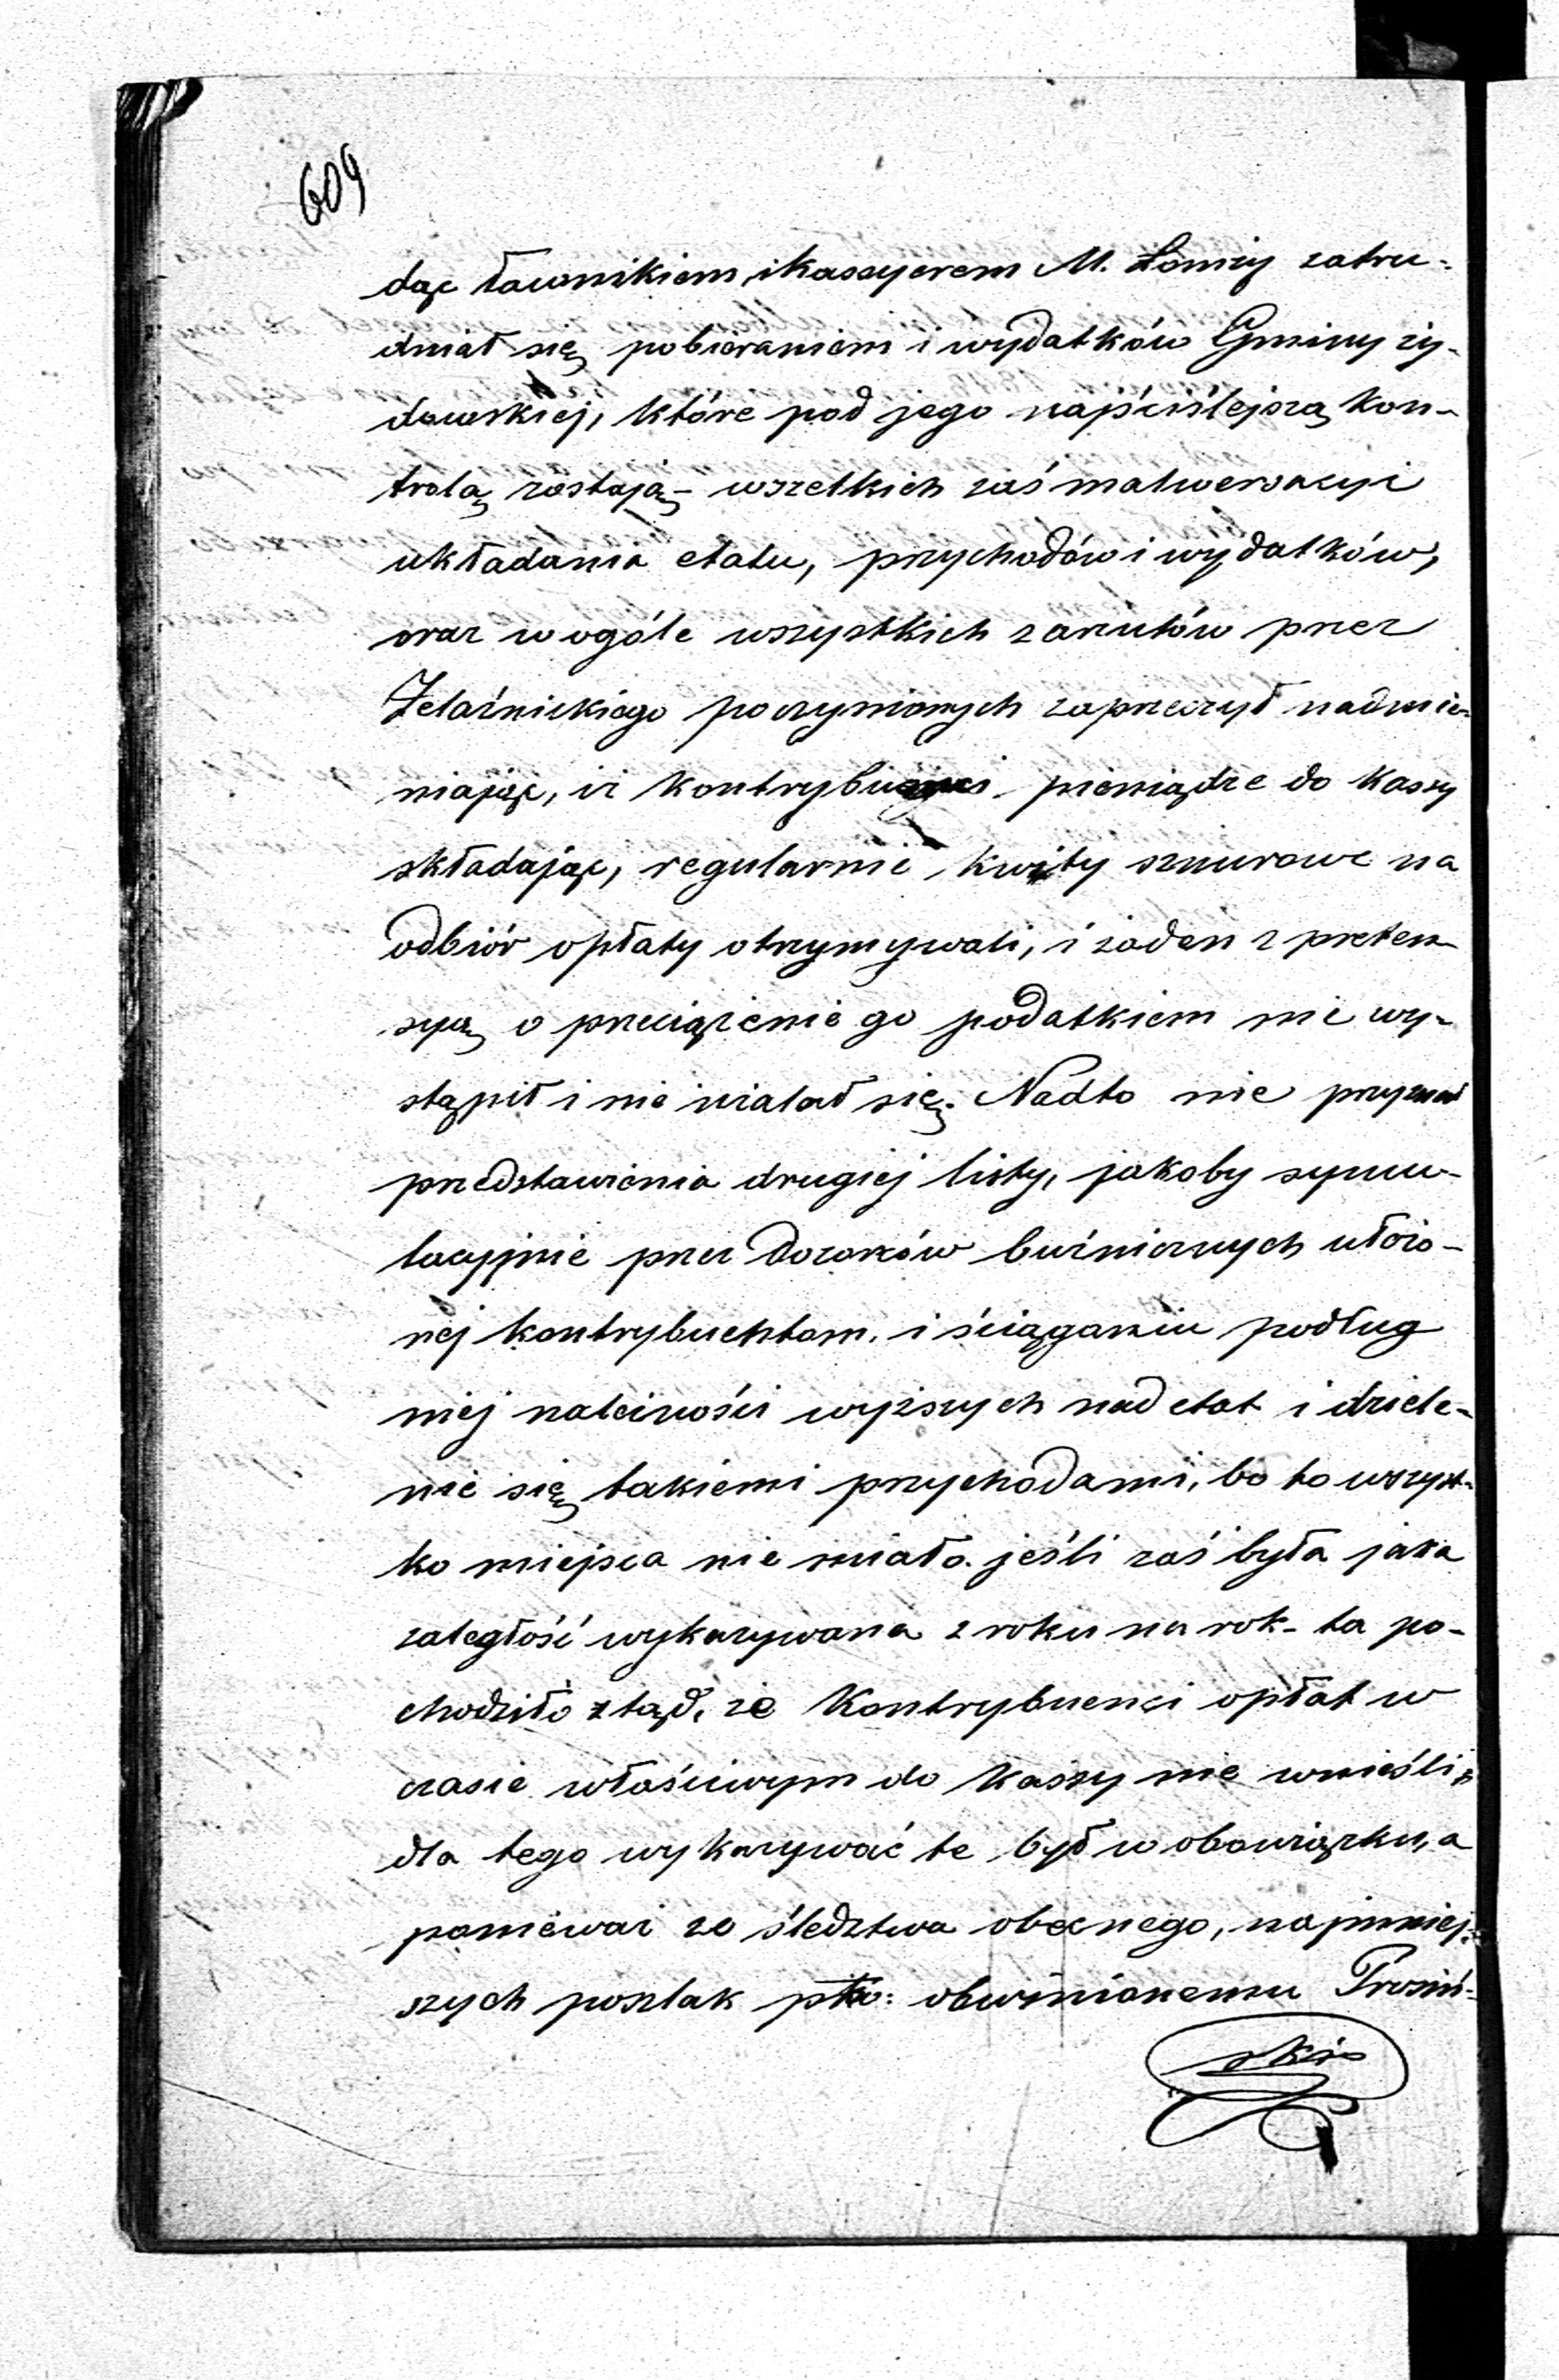 609
dąc ławnikiem i kassyerem M. Łomży zatru-
dniał się pobieraniem i wydatków Gminy ży-
dowskiej, które pod jego najściślejszą kon-
trolą zostają - wszelkich zaś malwersacyi
układania etatu, przychodów i wydatków,
oraz w ogóle wszystkich zarzutów przez
Żelaźnickiego poczynionych zaprzeczył nadmie-
niając, iż kontrybuenci pieniądze do kassy
składając, regularnie kwity sznurowe na
odbiór opłaty otrzymywali, i żaden z preten-
syą o przeciążenie go podatkiem nie wy-
stąpił i nie użalał się. Nadto nie przyznał
przedstawienia drugiej listy, jakoby symu-
lacyjnie przez Dozorców bużniczych ułożo-
nej kontrybuentom, i ściąganiu podług
niej należności wyższych nad etat i dziele-
nie się takiemi przychodami, bo to wszyst-
ko miejsca nie miało. jeśli zaś była jaka
zaległość wykazywana z roku na rok - ta po-
chodziło ztąd, że Kontrybuenci opłat w
czasie właściwym do kassy nie wnieśli,
dla tego wykazywać te był w obowiązku, a
ponieważ ze śledztwa obecnego, najmniej-
szych poszlak pko: obwinionemu Prosiń-
skie